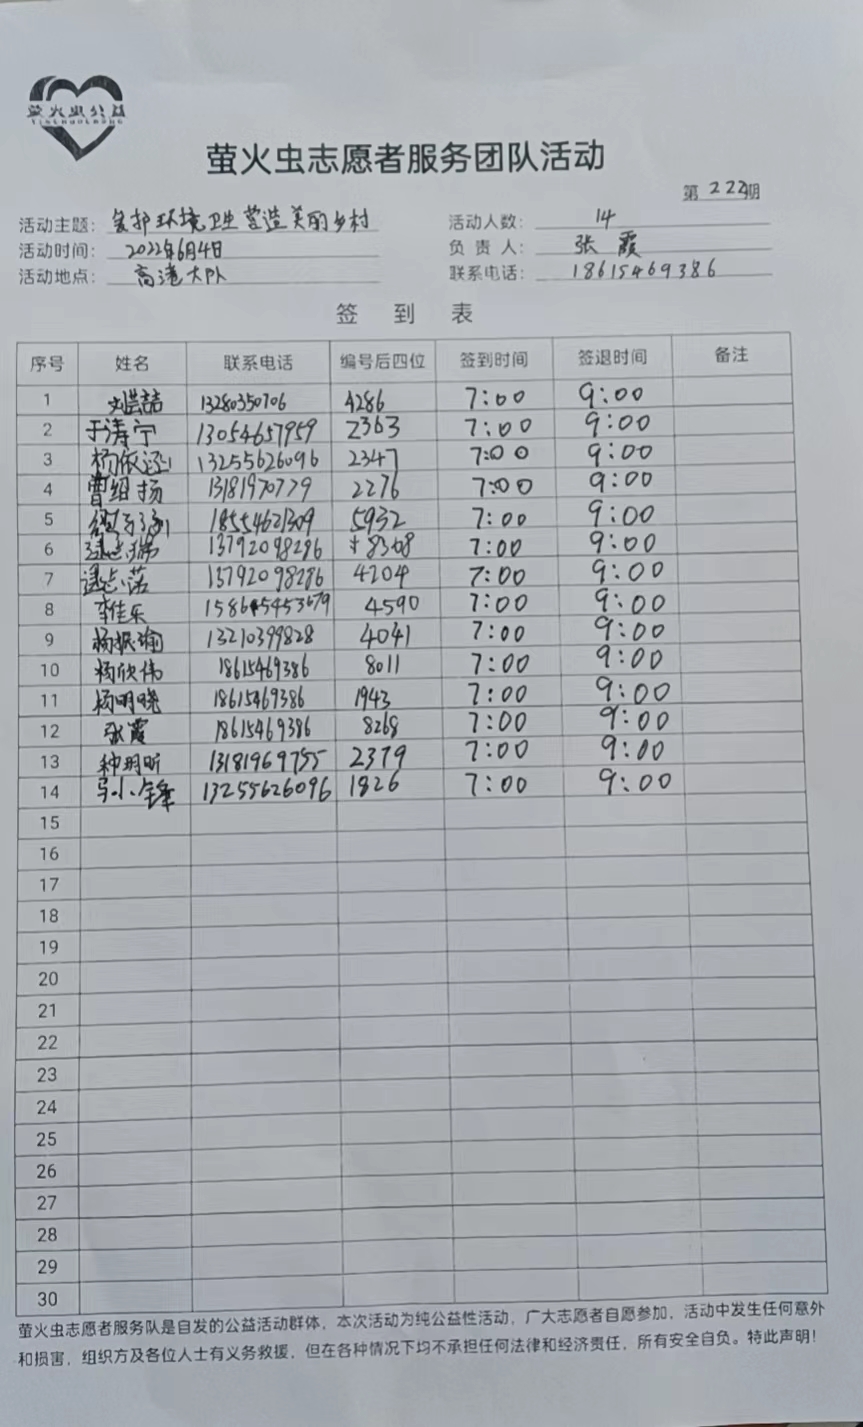 萤火虫公益
YINGHUOCHONG
萤火虫志愿者服务团队活动
第 222 期
活动主题: 爱护环境卫生营造美丽乡村 活动人数: 14
活动时间: 2022年6月4日 负 责 人: 张霞
活动地点: 高港大队 联系电话: 18615469386
签 到 表
序号 姓名 联系电话 编号后四位 签到时间 签退时间 备注
1 刘喆喆 13280350706 4286 7:00 9:00
2 于涛宁 13054657959 2363 7:00 9:00
3 杨依 13255626096 2347 7:00 9:00
4 曹绍扬 13181970779 2276 7:00 9:00
5 18554621309 5932 7:00 9:00
6 逯志瑞 13792098286 8308 7:00 9:00
7 逯志诺 13792098286 4204 7:00 9:00
8 李佳乐 4590 7:00 9:00
9 杨振瑜 13210399828 4041 7:00 9:00
10 杨欣伟 18615469386 8011 7:00 9:00
11 杨明晓 18615469386 1943 7:00 9:00
12 张霞 18615469386 8268 7:00 9:00
13 种玥昕 13181969755 2379 7:00 9:00
14 马小锋 13255626096 1826 7:00 9:00
15
16
17
18
19
20
21
22
23
24
25
26
27
28
29
30
萤火虫志愿者服务队是自发的公益活动群体，本次活动为纯公益性活动，广大志愿者自愿参加，活动中发生任何意外
和损害，组织方及各位人士有义务救援，但在各种情况下均不承担任何法律和经济责任，所有安全自负。特此声明！